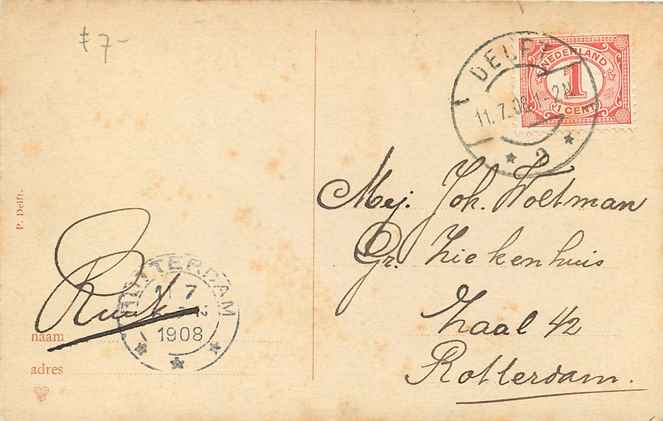 f 7-
DELFT
11.7.08.1-2N
2
NEDERLAND
1
1 CENT
Mej. Joh. Woltman
Gr. Ziekenhuis
Zaal 42
Rotterdam.
P. Delft.
ROTTERDAM
11 7
1908
naam
adres